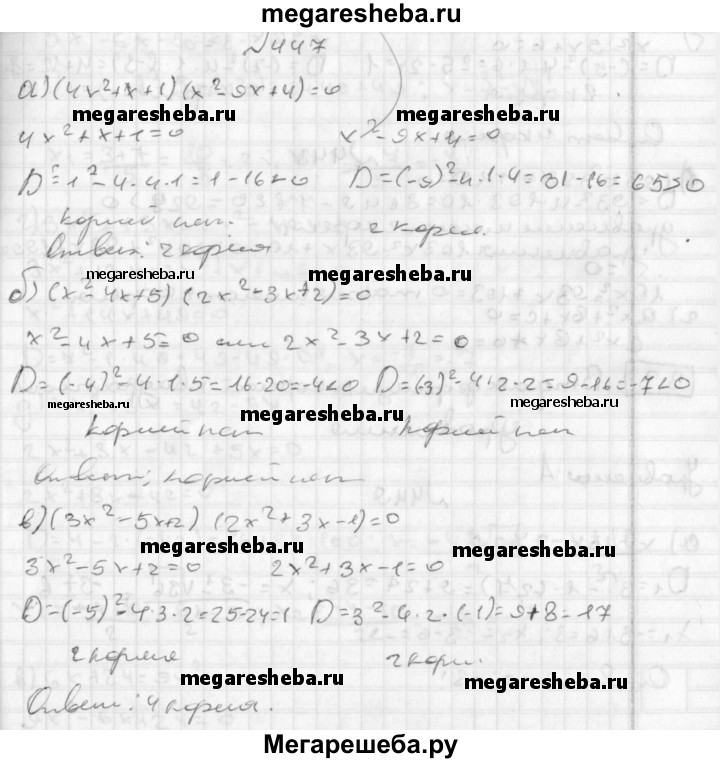 megaresheba.ru
№447
а) (4x²+x+1)(x²-9x+4)=0
megaresheba.ru megaresheba.ru
4x²+x+1=0 x²-9x+4=0
D=1²-4·4·1=1-16<0 D=(-9)²-4·1·4=81-16=65>0
корней нет. 2 корня.
Ответ: 2 корня
megaresheba.ru megaresheba.ru
б) (x²-4x+5)(2x²-3x+2)=0
x²-4x+5=0 или 2x²-3x+2=0
D=(-4)²-4·1·5=16-20=-4<0 D=(-3)²-4·2·2=9-16=-7<0
megaresheba.ru megaresheba.ru megaresheba.ru
корней нет корней нет
Ответ: корней нет
в) (3x²-5x+2)(2x²+3x-1)=0
megaresheba.ru megaresheba.ru
3x²-5x+2=0 2x²+3x-1=0
D=(-5)²-4·3·2=25-24=1 D=3²-4·2·(-1)=9+8=17
2 корня 2 корн.
megaresheba.ru megaresheba.ru
Ответ: 4 корня.
Мегарешеба.ру